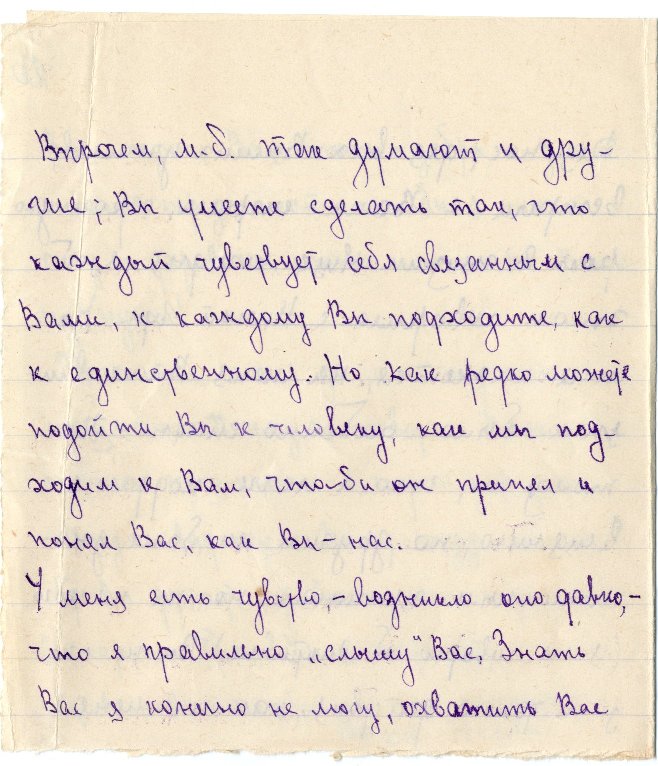 Впрочем, м.б. так думают и дру-
гие; Вы умеете сделать так, что
каждый чувствует себя связанным с
Вами, к каждому Вы подходите, как
к единственному. Но как редко можете
подойти Вы к человеку, как мы под-
ходим к Вам, что-бы он принял и
понял Вас, как Вы – нас.
У меня есть чувство, – возникло оно давно, –
что я правильно „слышу" Вас. Знать
Вас я конечно не могу, охватить Вас